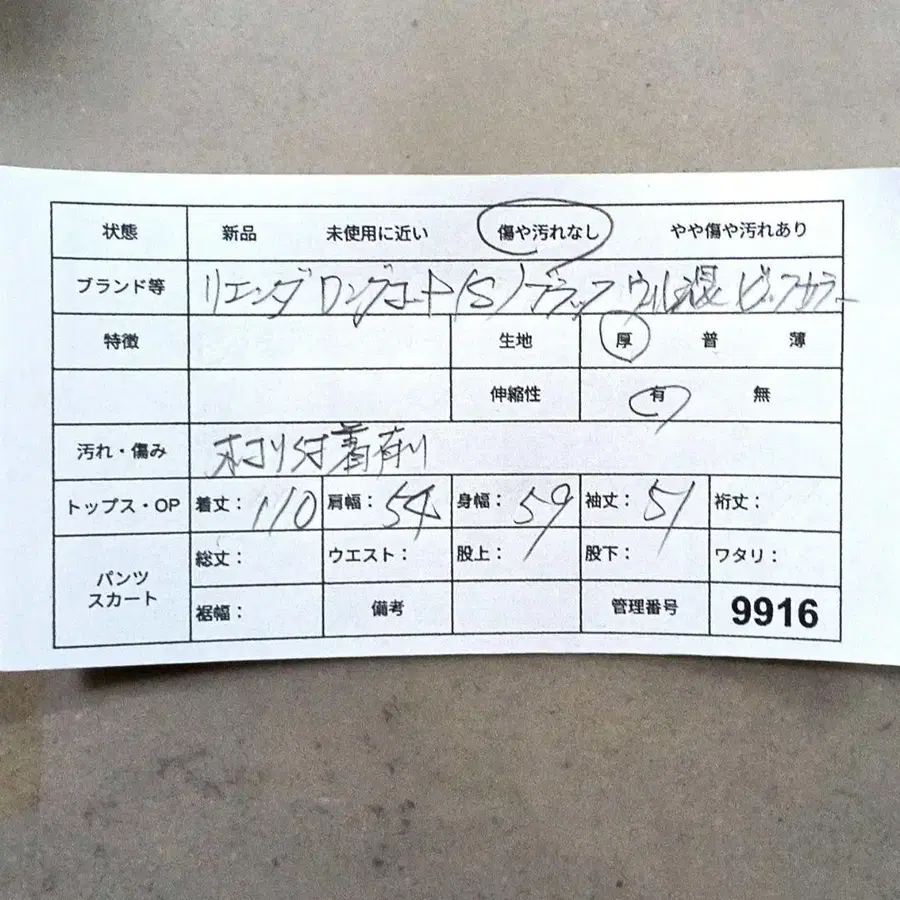 状態 新品 未使用に近い 傷や汚れなし やや傷や汚れあり
ブランド等 リエンダ ロングコート(S)ブラック ウール混 ビッグカラー
特徴 生地 厚 普 薄
伸縮性 有 無
汚れ・傷み ホコリ付着有り
トップス・OP 着丈:110 肩幅:54 身幅:59 袖丈:51 裄丈:
パンツ スカート 総丈: ウエスト: 股上: 股下: ワタリ:
裾幅: 備考 管理番号 9916